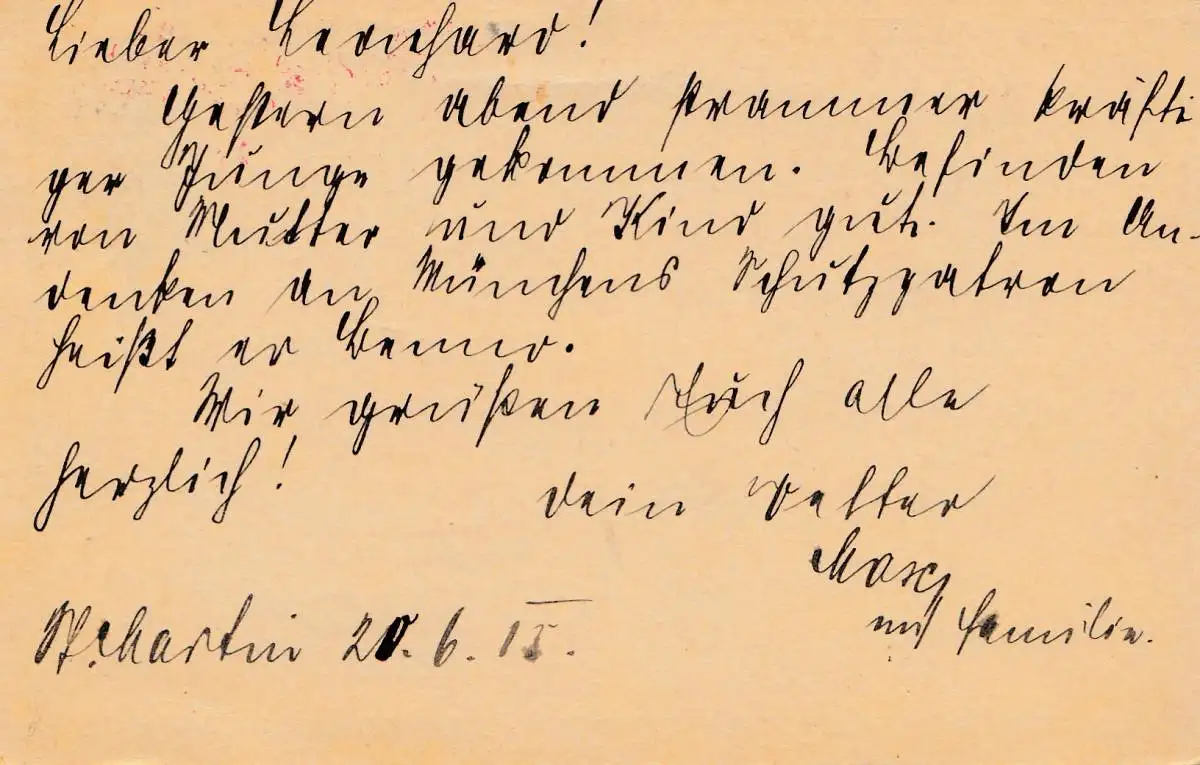 Lieber Leonhard!
Gestern abend strammer kräfti
ger Junge gekommen. Befinden
von Mutter und Kind gut. Im An-
denken an Münchens Schutzpatron
heißt er Benno.
Wir grüßen Euch alle
herzlich!
Dein Vetter
Max
mit Familie.
St. Martin 20. 6. 15.